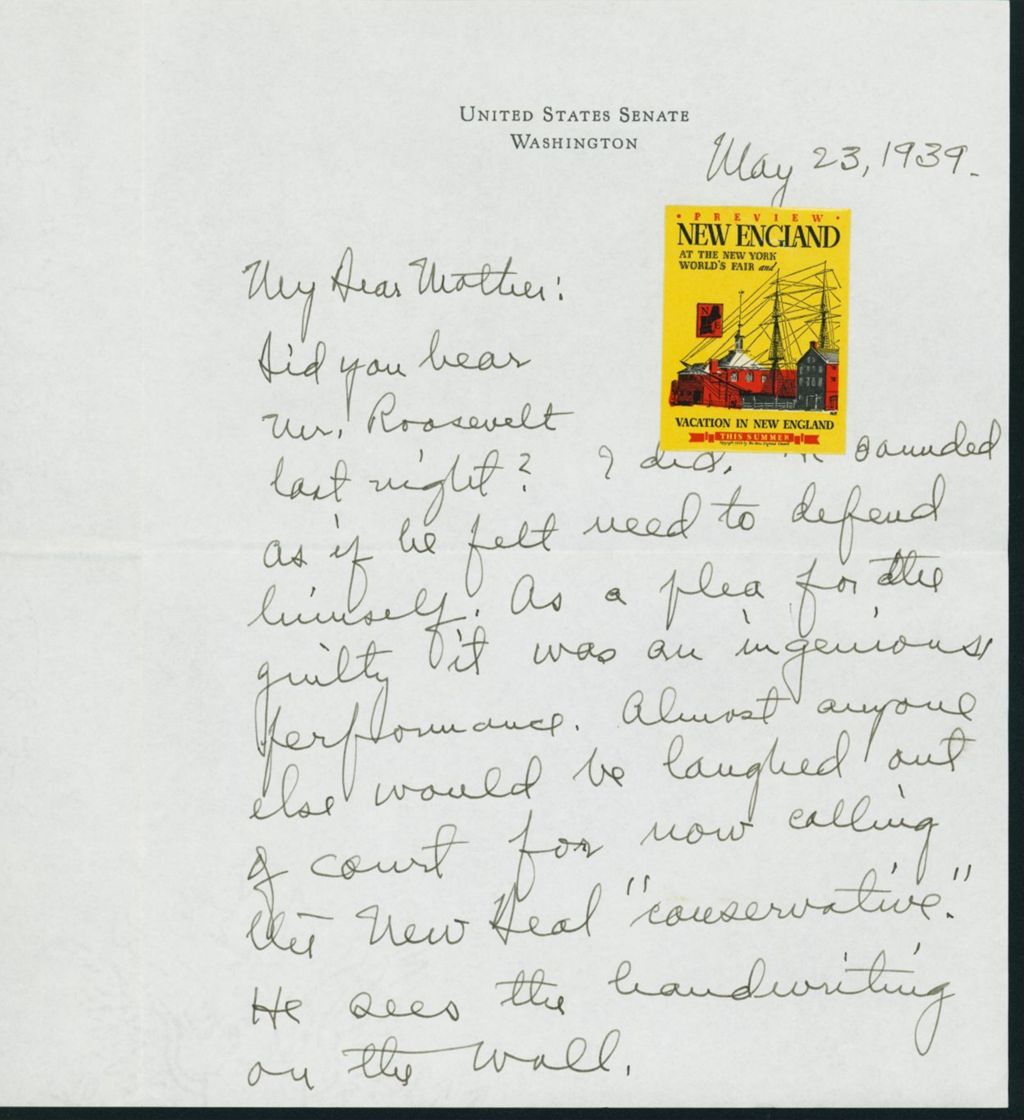 UNITED STATES SENATE
WASHINGTON
May 23, 1939.
• PREVIEW •
NEW ENGLAND
AT THE NEW YORK
WORLD'S FAIR and
N
E
VACATION IN NEW ENGLAND
THIS SUMMER
My Dear Mother:
Did you hear
Mr. Roosevelt
last night? I did. sounded
as if he felt need to defend
himself. As a plea for the
guilty it was an ingenious
performance. Almost anyone
else would be laughed out
of court for now calling
the New Deal "conservative."
He sees the handwriting
on the wall.